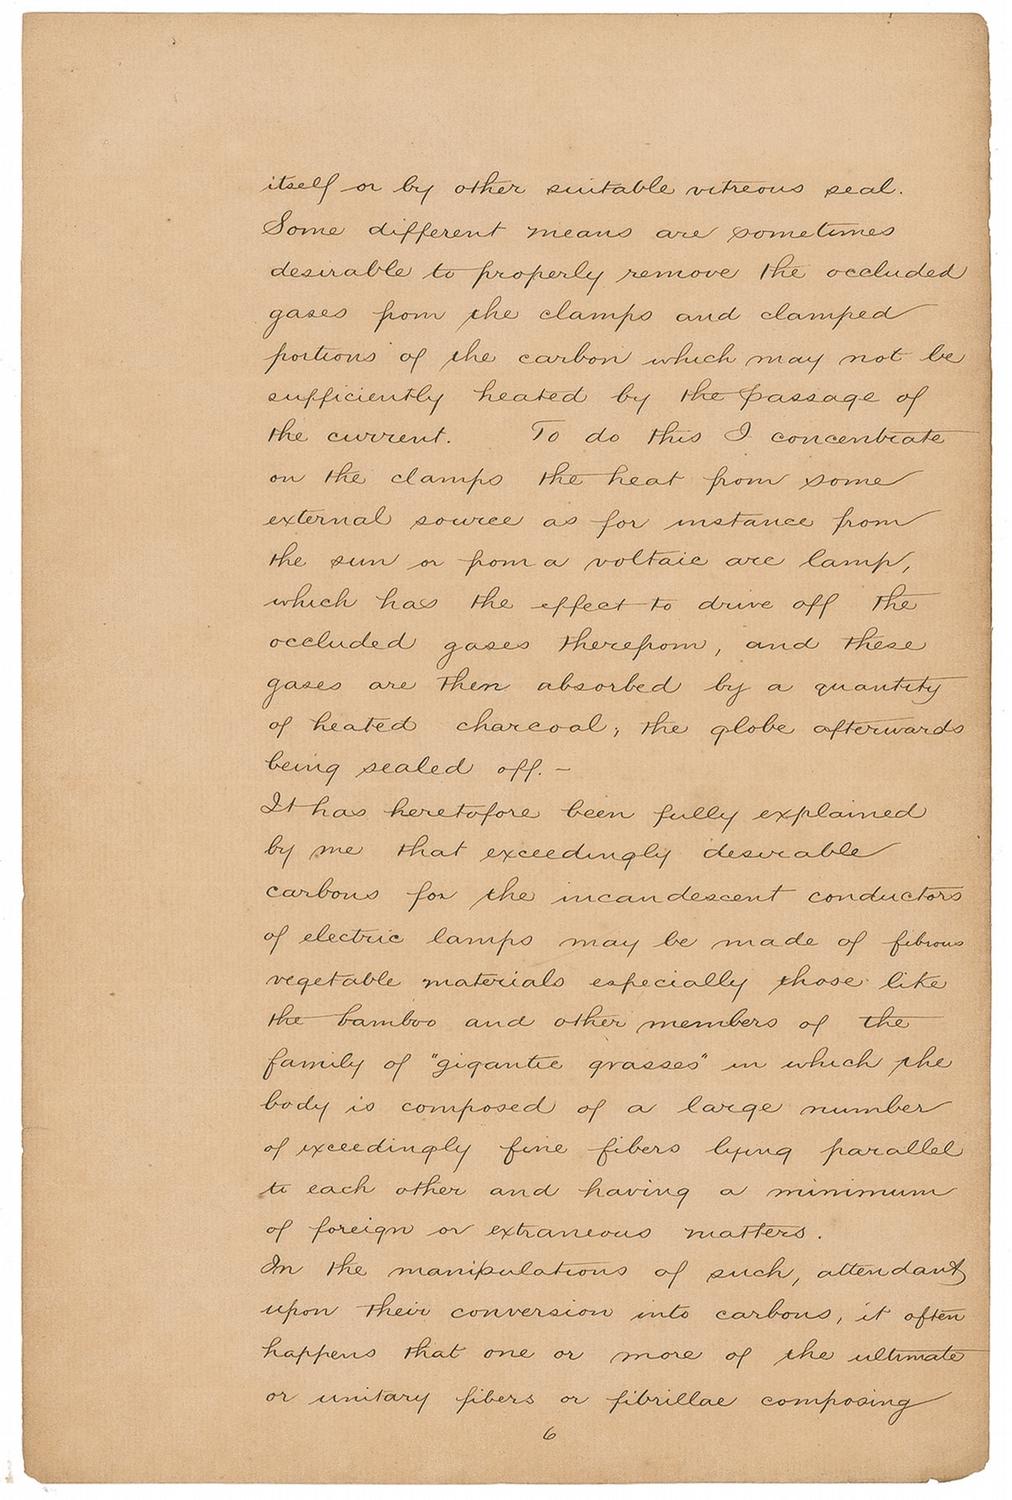 itself or by other suitable vitreous seal.
Some different means are sometimes
desirable to properly remove the occluded
gases from the clamps and clamped
portions of the carbon which may not be
sufficiently heated by the passage of
the current. To do this I concentrate
on the clamps the heat from some
external source as for instance from
the sun or from a voltaic arc lamp,
which has the effect to drive off the
occluded gases therefrom, and these
gases are then absorbed by a quantity
of heated charcoal, the globe afterwards
being sealed off. —
It has heretofore been fully explained
by me that exceedingly desirable
carbons for the incandescent conductors
of electric lamps may be made of fibrous
vegetable materials especially those like
the bamboo and other members of the
family of "gigantic grasses" in which the
body is composed of a large number
of exceedingly fine fibers lying parallel
to each other and having a minimum
of foreign or extraneous matters.
In the manipulations of such, attendant
upon their conversion into carbons, it often
happens that one or more of the ultimate
or unitary fibers or fibrillae composing
6